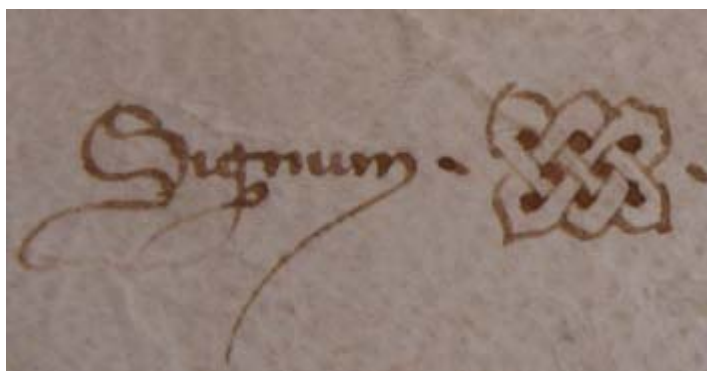 Signum · ·